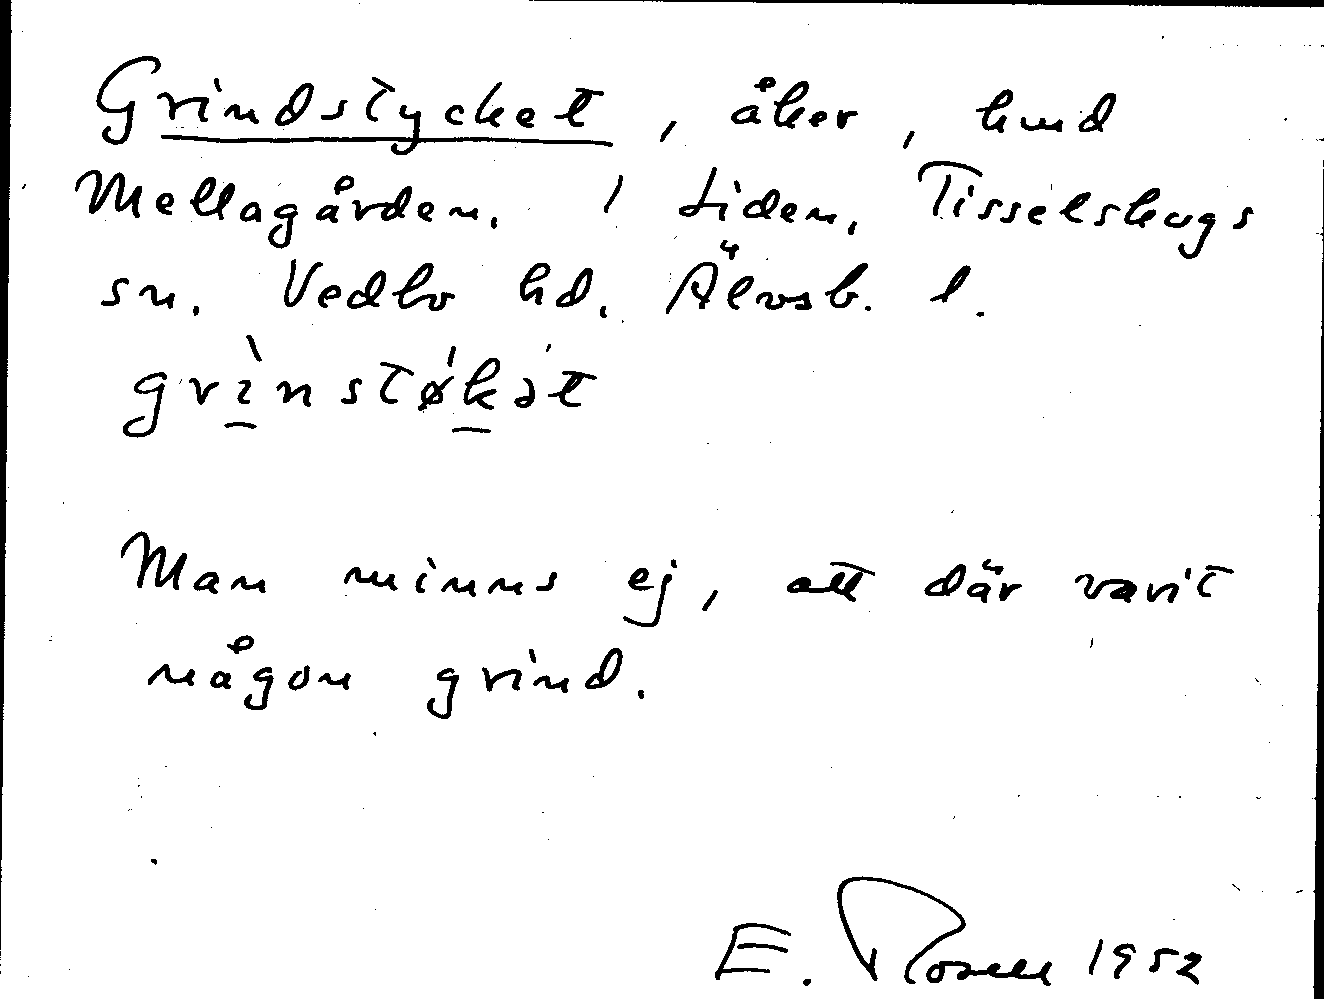 Grindstycket, åker, hmd
Mellagården. 1 Liden, Tisselskogs
sn. Vedbo hd. Älvsb. l.
grìnstøkət
Man minns ej, att där varit
någon grind.
E. Rosell 1952